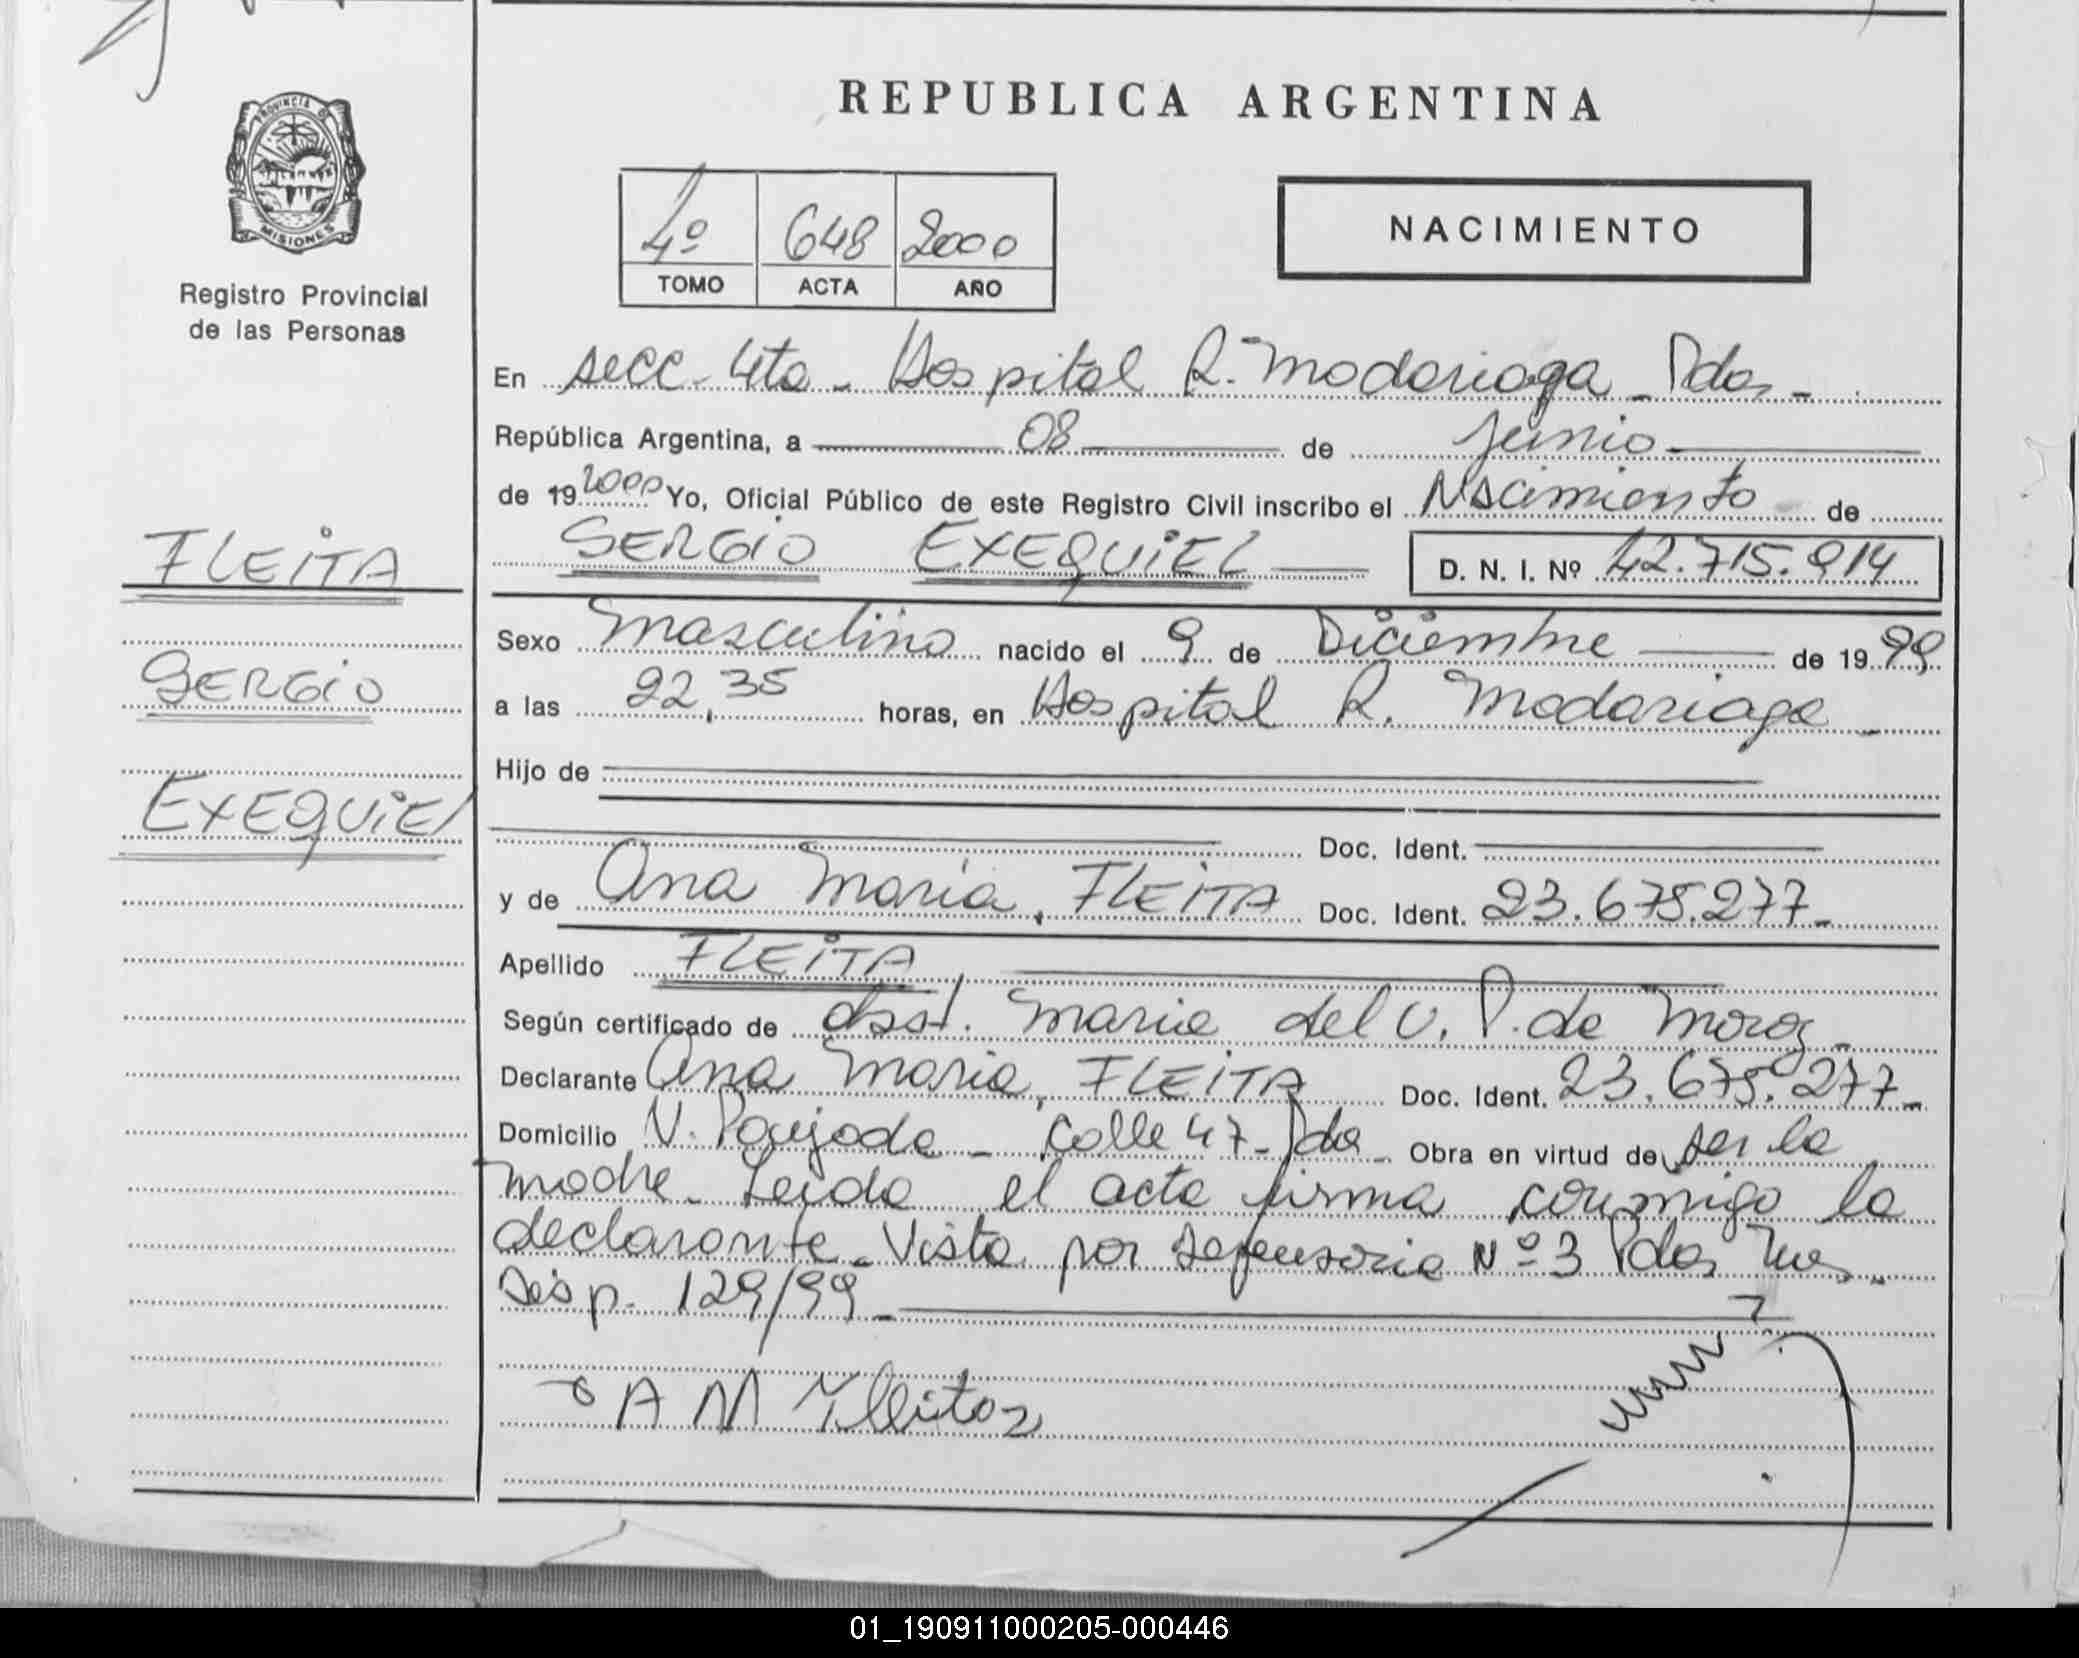 REPUBLICA ARGENTINA
PROVINCIA DE
MISIONES
Registro Provincial
de las Personas
4º 648 2000
TOMO ACTA AÑO
NACIMIENTO
En secc. 4ta - Hospital R. Madariaga - Pdas -
República Argentina, a 08 de Junio
de 19 2000 Yo, Oficial Público de este Registro Civil inscribo el Nacimiento de
SERGIO EXEQUIEL D. N. I. Nº 42.715.914
FLEITA
SERGIO
EXEQUIEL
Sexo Masculino nacido el 9 de Diciembre de 19 99
a las 22,35 horas, en Hospital R. Madariaga -
Hijo de
Doc. Ident.
y de Ana Maria, FLEITA Doc. Ident. 23.675.277-
Apellido FLEITA
Según certificado de obst. Maria del C. P. de
Declarante Ana Maria, FLEITA Doc. Ident. 23.675.277-
Domicilio V. Poujade - Calle 47 - Pdas - Obra en virtud de ser la
madre. Leida el acta firma conmigo la
declarante. Vista por defensoria Nº 3 Pdas Mnes.
Disp. 129/99 -
A M Fleitas
01_190911000205-000446